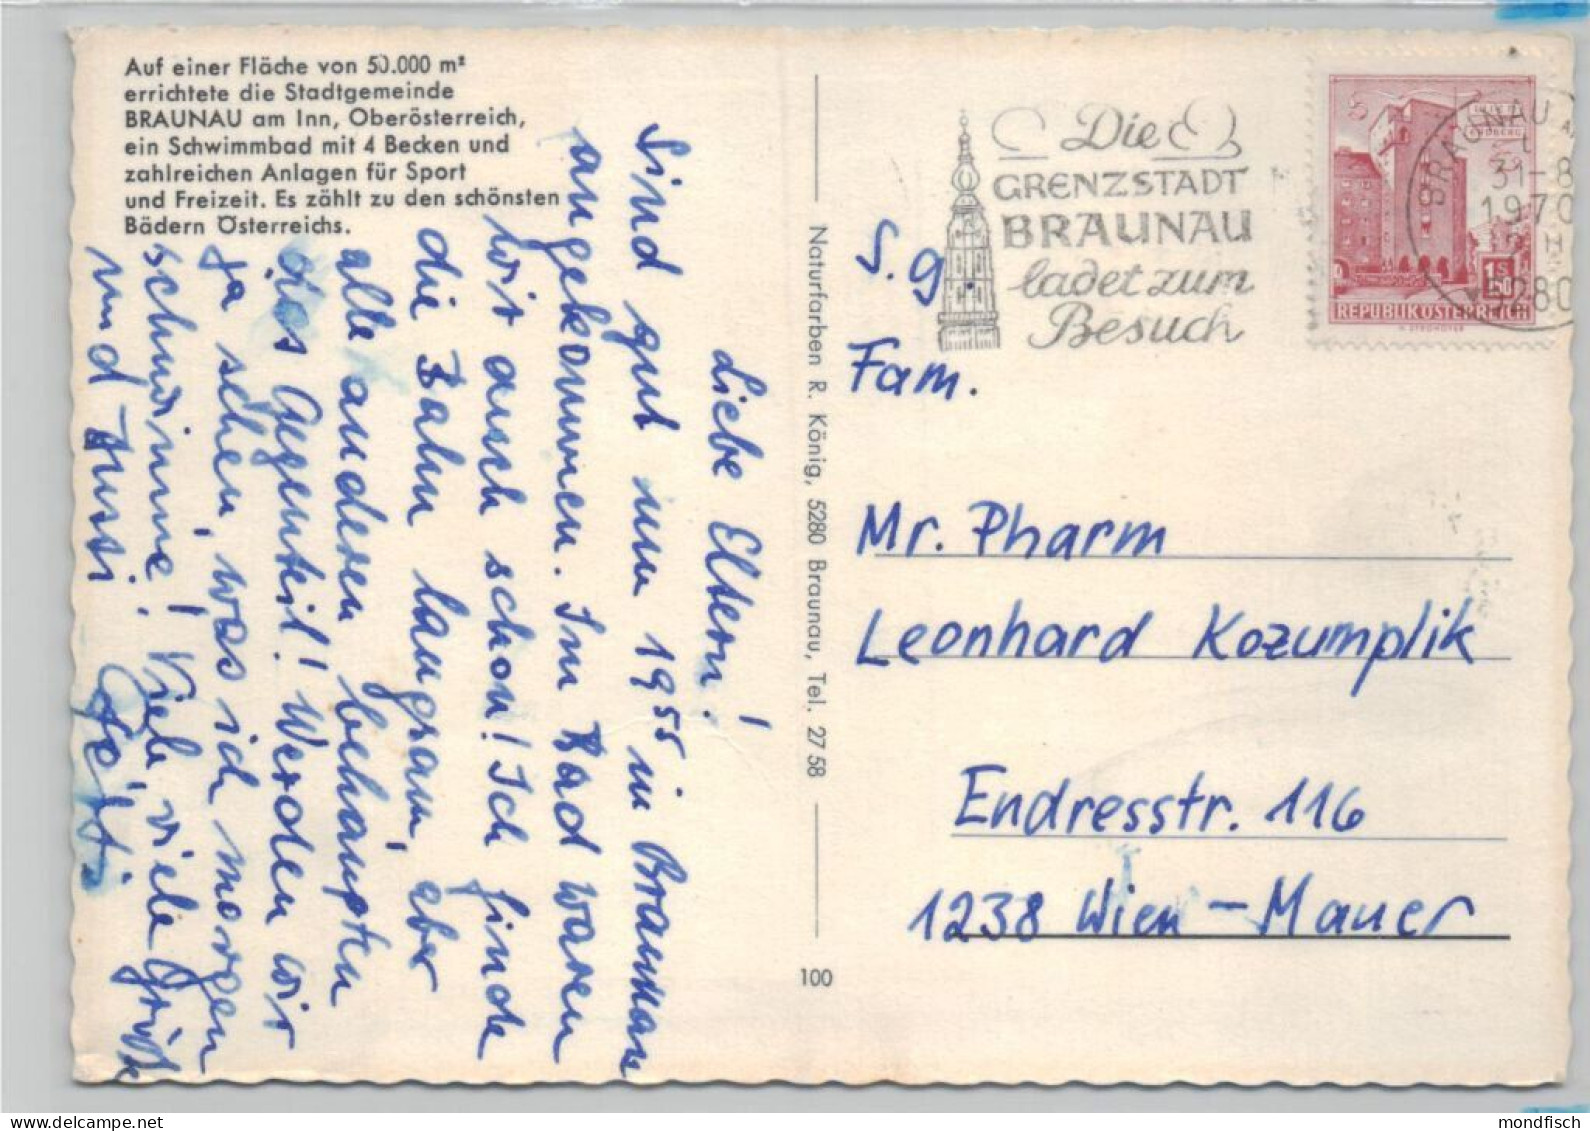 Auf einer Fläche von 50.000 m²
errichtete die Stadtgemeinde
BRAUNAU am Inn, Oberösterreich,
ein Schwimmbad mit 4 Becken und
zahlreichen Anlagen für Sport
und Freizeit. Es zählt zu den schönsten
Bädern Österreichs.
Liebe Eltern!
Sind gut um 1955 in Braunau
angekommen. Im Bad waren
wir auch schon! Ich finde
die Bahn langsam, aber
alle anderen behaupten
das Gegenteil! Werden wir
ja sehen, was ich morgen
schwimme! Viele viele Grüße
und Bussi,
Naturfarben R. König, 5280 Braunau, Tel. 27 58
100
Die
GRENZSTADT
BRAUNAU
ladet zum
Besuch
BRAUNAU
31-8
1970
5280
1S
50
REPUBLIK ÖSTERREICH
S. g.
Fam.
Mr. Pharm
Leonhard Kozumplik
Endresstr. 116
1238 Wien - Mauer
mondfisch